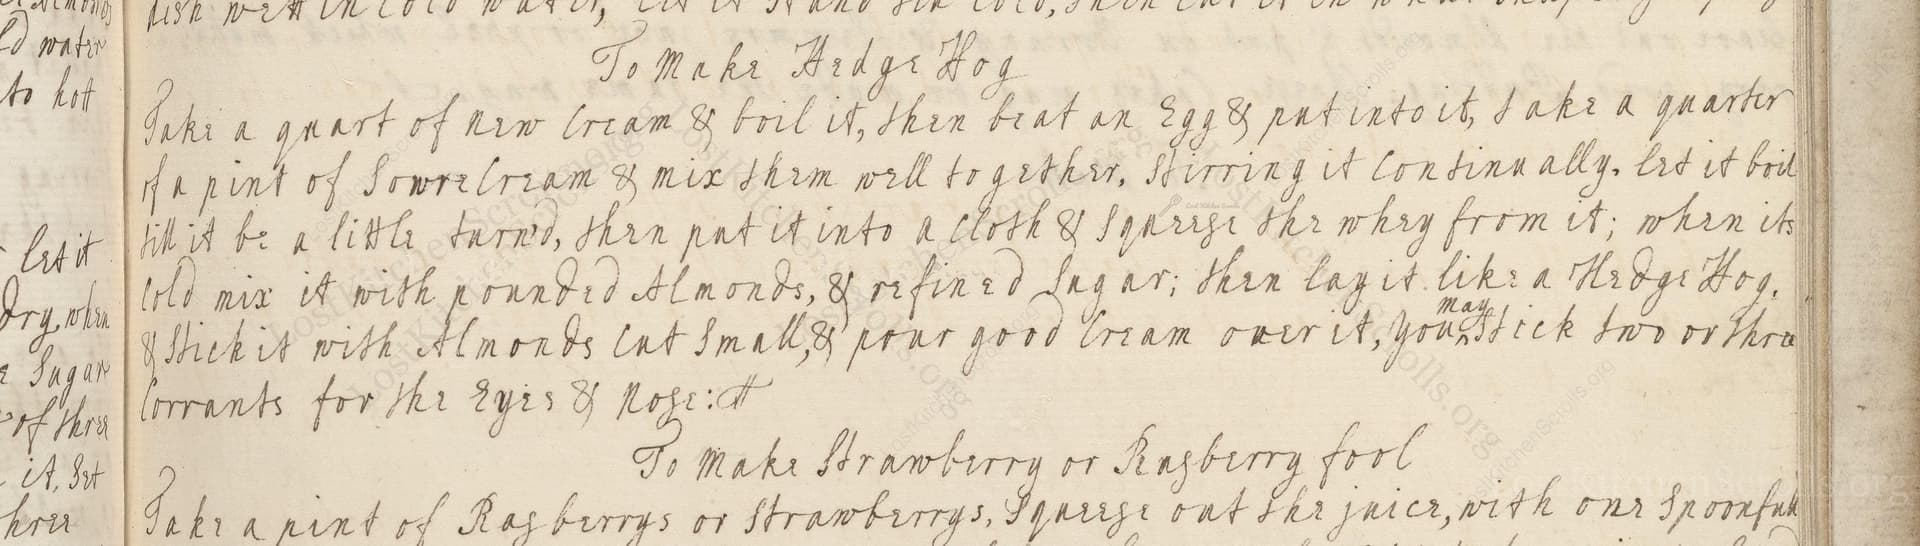 Almonds
ld water
to hott
let it
Dry, when
e Sugar
of three
it, Set
three
dish wett in Cold water, let it stand till Cold, then Cut it in what
To Make Hedge Hog
Take a quart of new Cream & boil it, then beat an Egg & put into it, take a quarter
of a pint of Sowre Cream & mix them well together, Stirring it Continually. let it boil
till it be a little turn'd, then put it into a Cloth & Squeese the whey from it; when its
Cold mix it with pounded Almonds, & refined Sugar; then lay it like a Hedge Hog.
& Stick it with Almonds Cut Small, & pour good Cream over it, you may Stick two or three
Corrants for the Eyes & Nose:
To Make Strawberry or Rasberry fool
Take a pint of Rasberrys or Strawberrys, Squeese out the juice, with one Spoonfull
LostKitchenScrolls.org